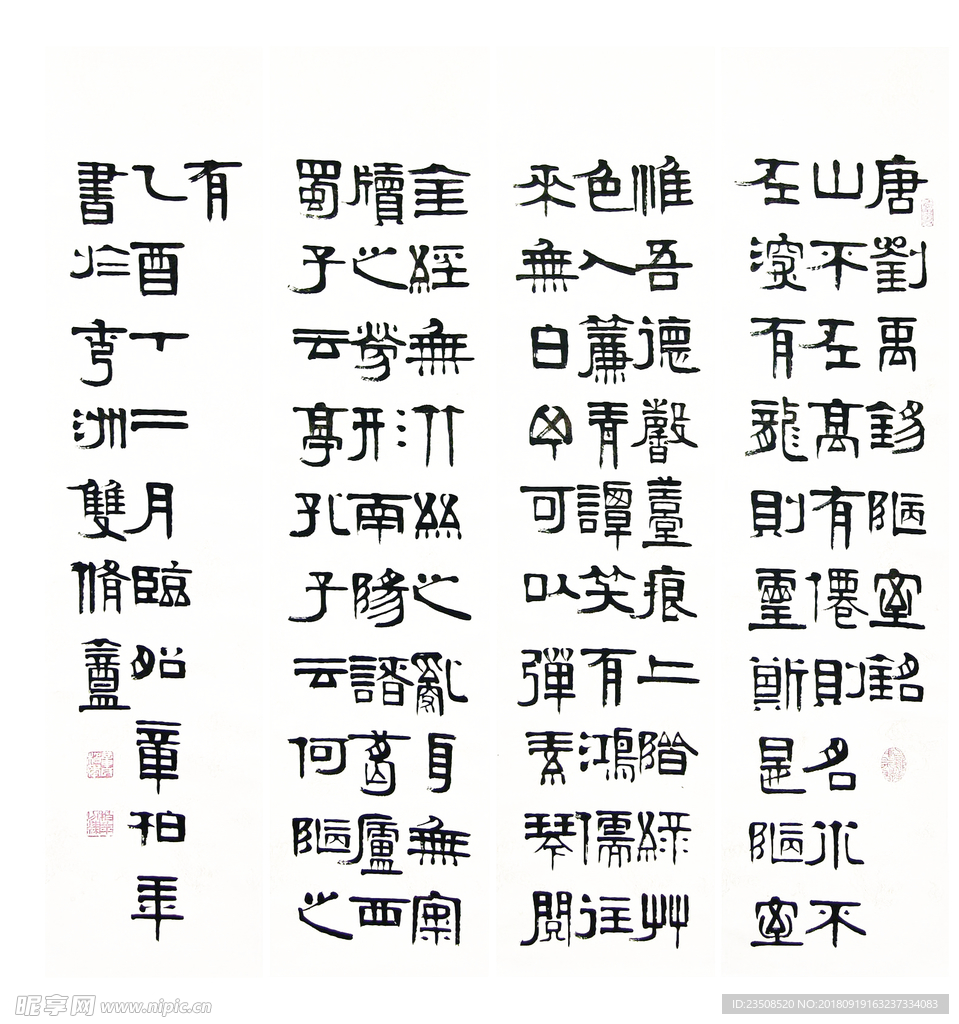 唐劉禹錫陋室銘
山不在高有僊則名水不
在深有龍則靈斯是陋室
惟吾德馨臺痕上階綠艸
色入簾青譚笑有鴻儒往
來無白丁可以彈素琴閱
金經無竹絲之亂耳無案
牘之勞形南陽諸葛廬西
蜀子云亭孔子云何陋之
有
乙酉十二月臨章柏年
書於洲雙脩盦
昵享网 www.nipic.cn
ID:23508520 NO:20180919163237334083